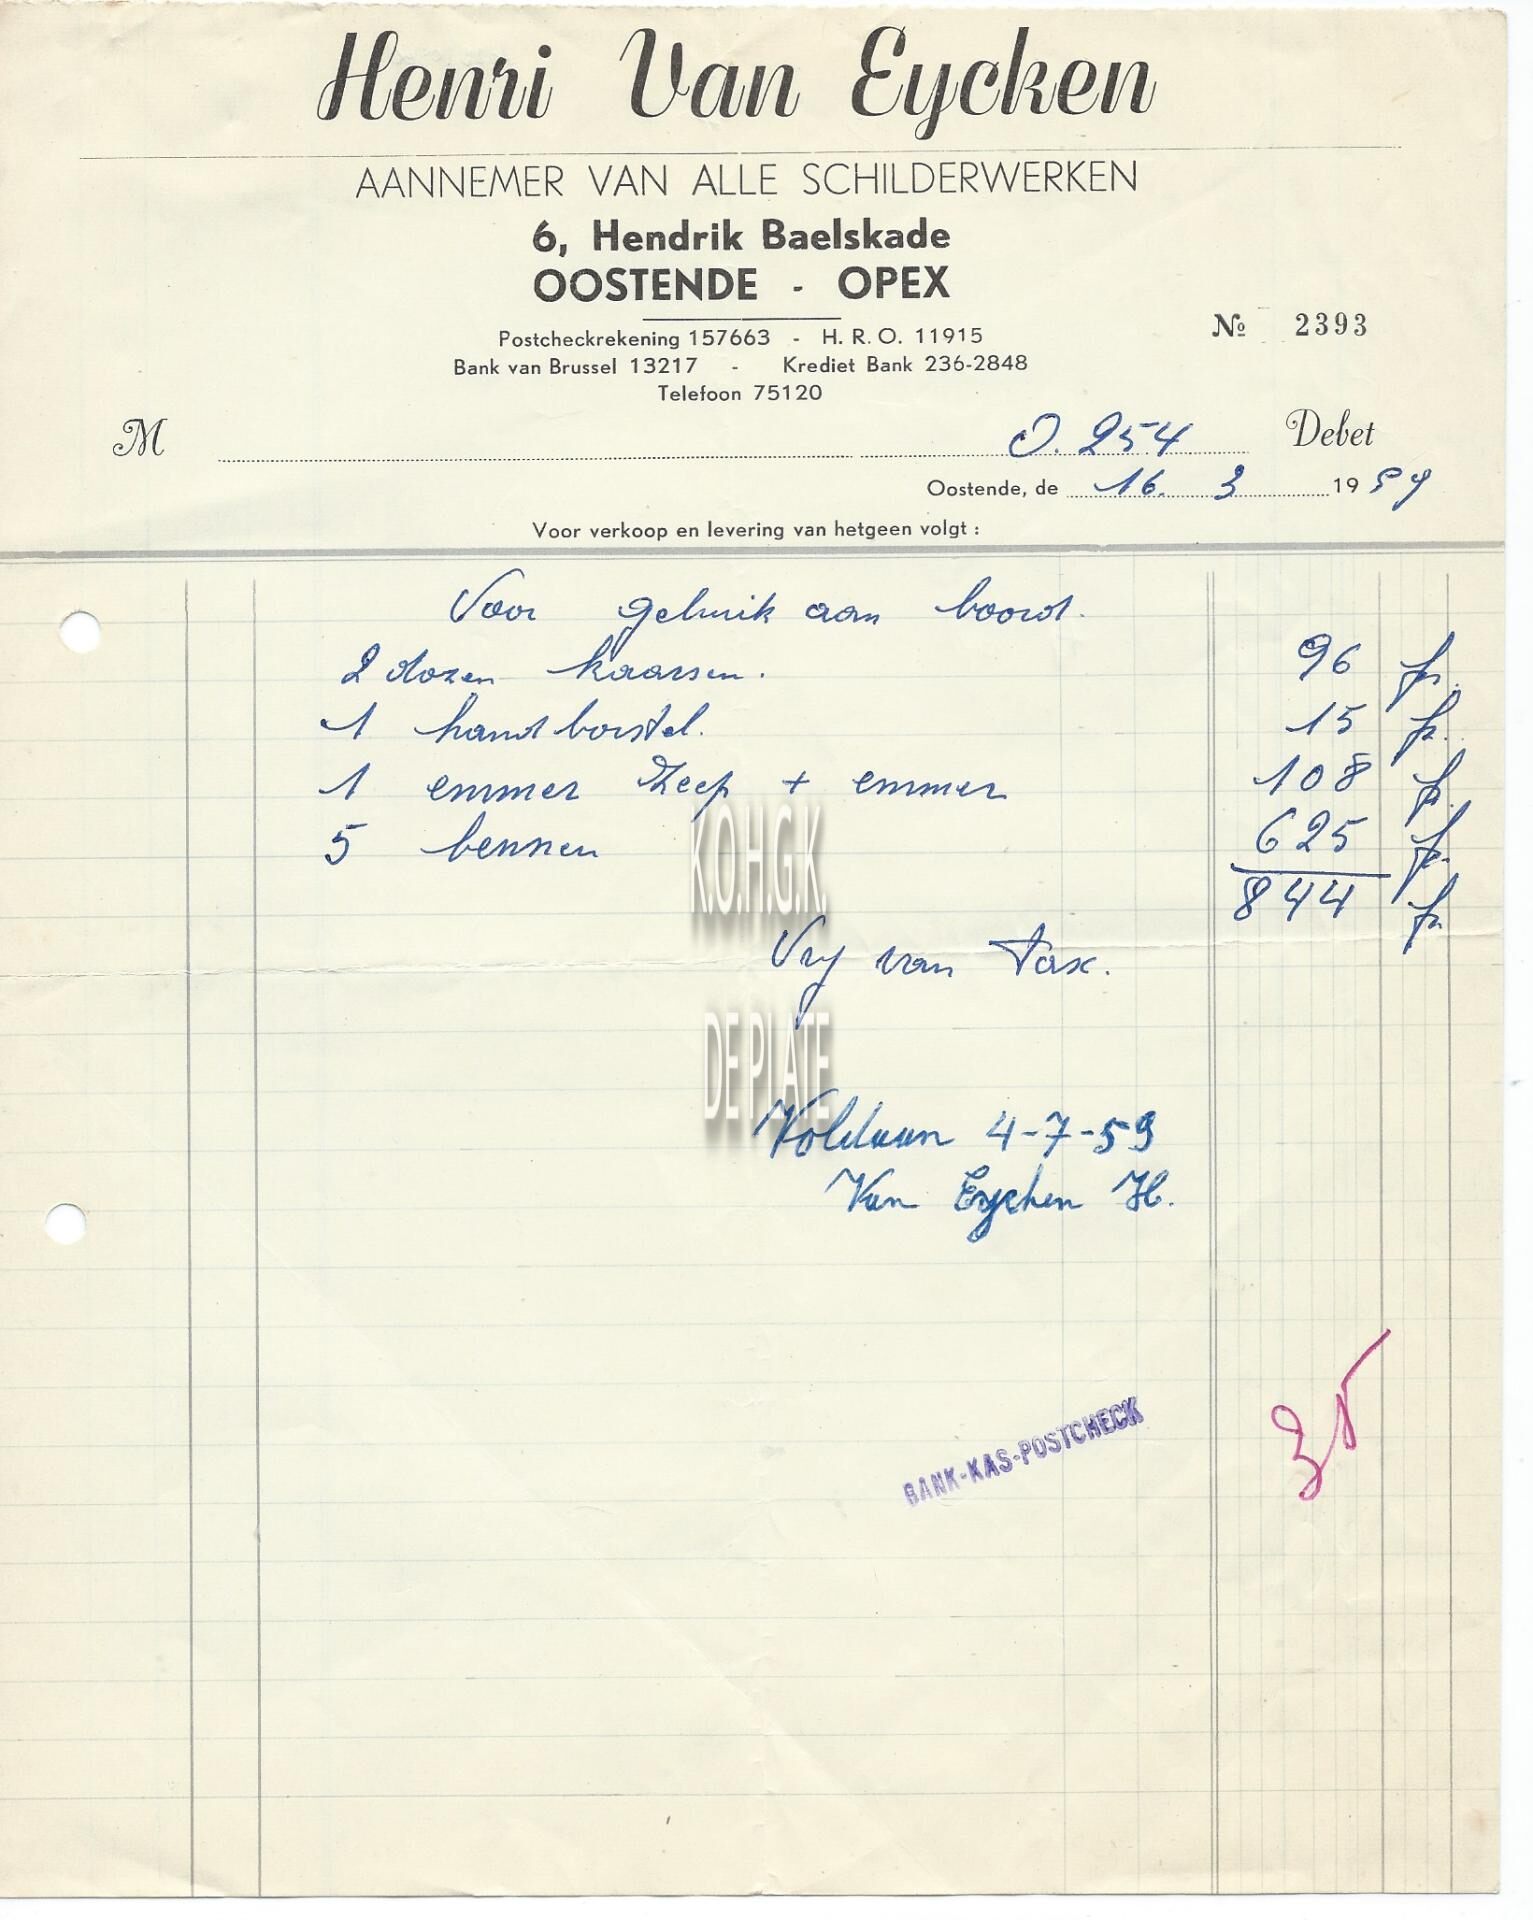 Henri Van Eycken
AANNEMER VAN ALLE SCHILDERWERKEN
6, Hendrik Baelskade
OOSTENDE - OPEX
Postcheckrekening 157663 - H. R. O. 11915
Bank van Brussel 13217 - Krediet Bank 236-2848
Telefoon 75120
№ 2393
M O. 254 Debet
Oostende, de 16. 3 1959
Voor verkoop en levering van hetgeen volgt :
Voor gebruik aan boord.
2 dozen kaarsen. 96 fr.
1 handborstel. 15 fr.
1 emmer zeep + emmer 108 fr.
5 bennen 625 fr.
844 fr
K.O.H.G.K.
Vry van Tax.
DE PLATE
Voldaan 4-7-59
Van Eycken H.
BANK-KAS-POSTCHECK